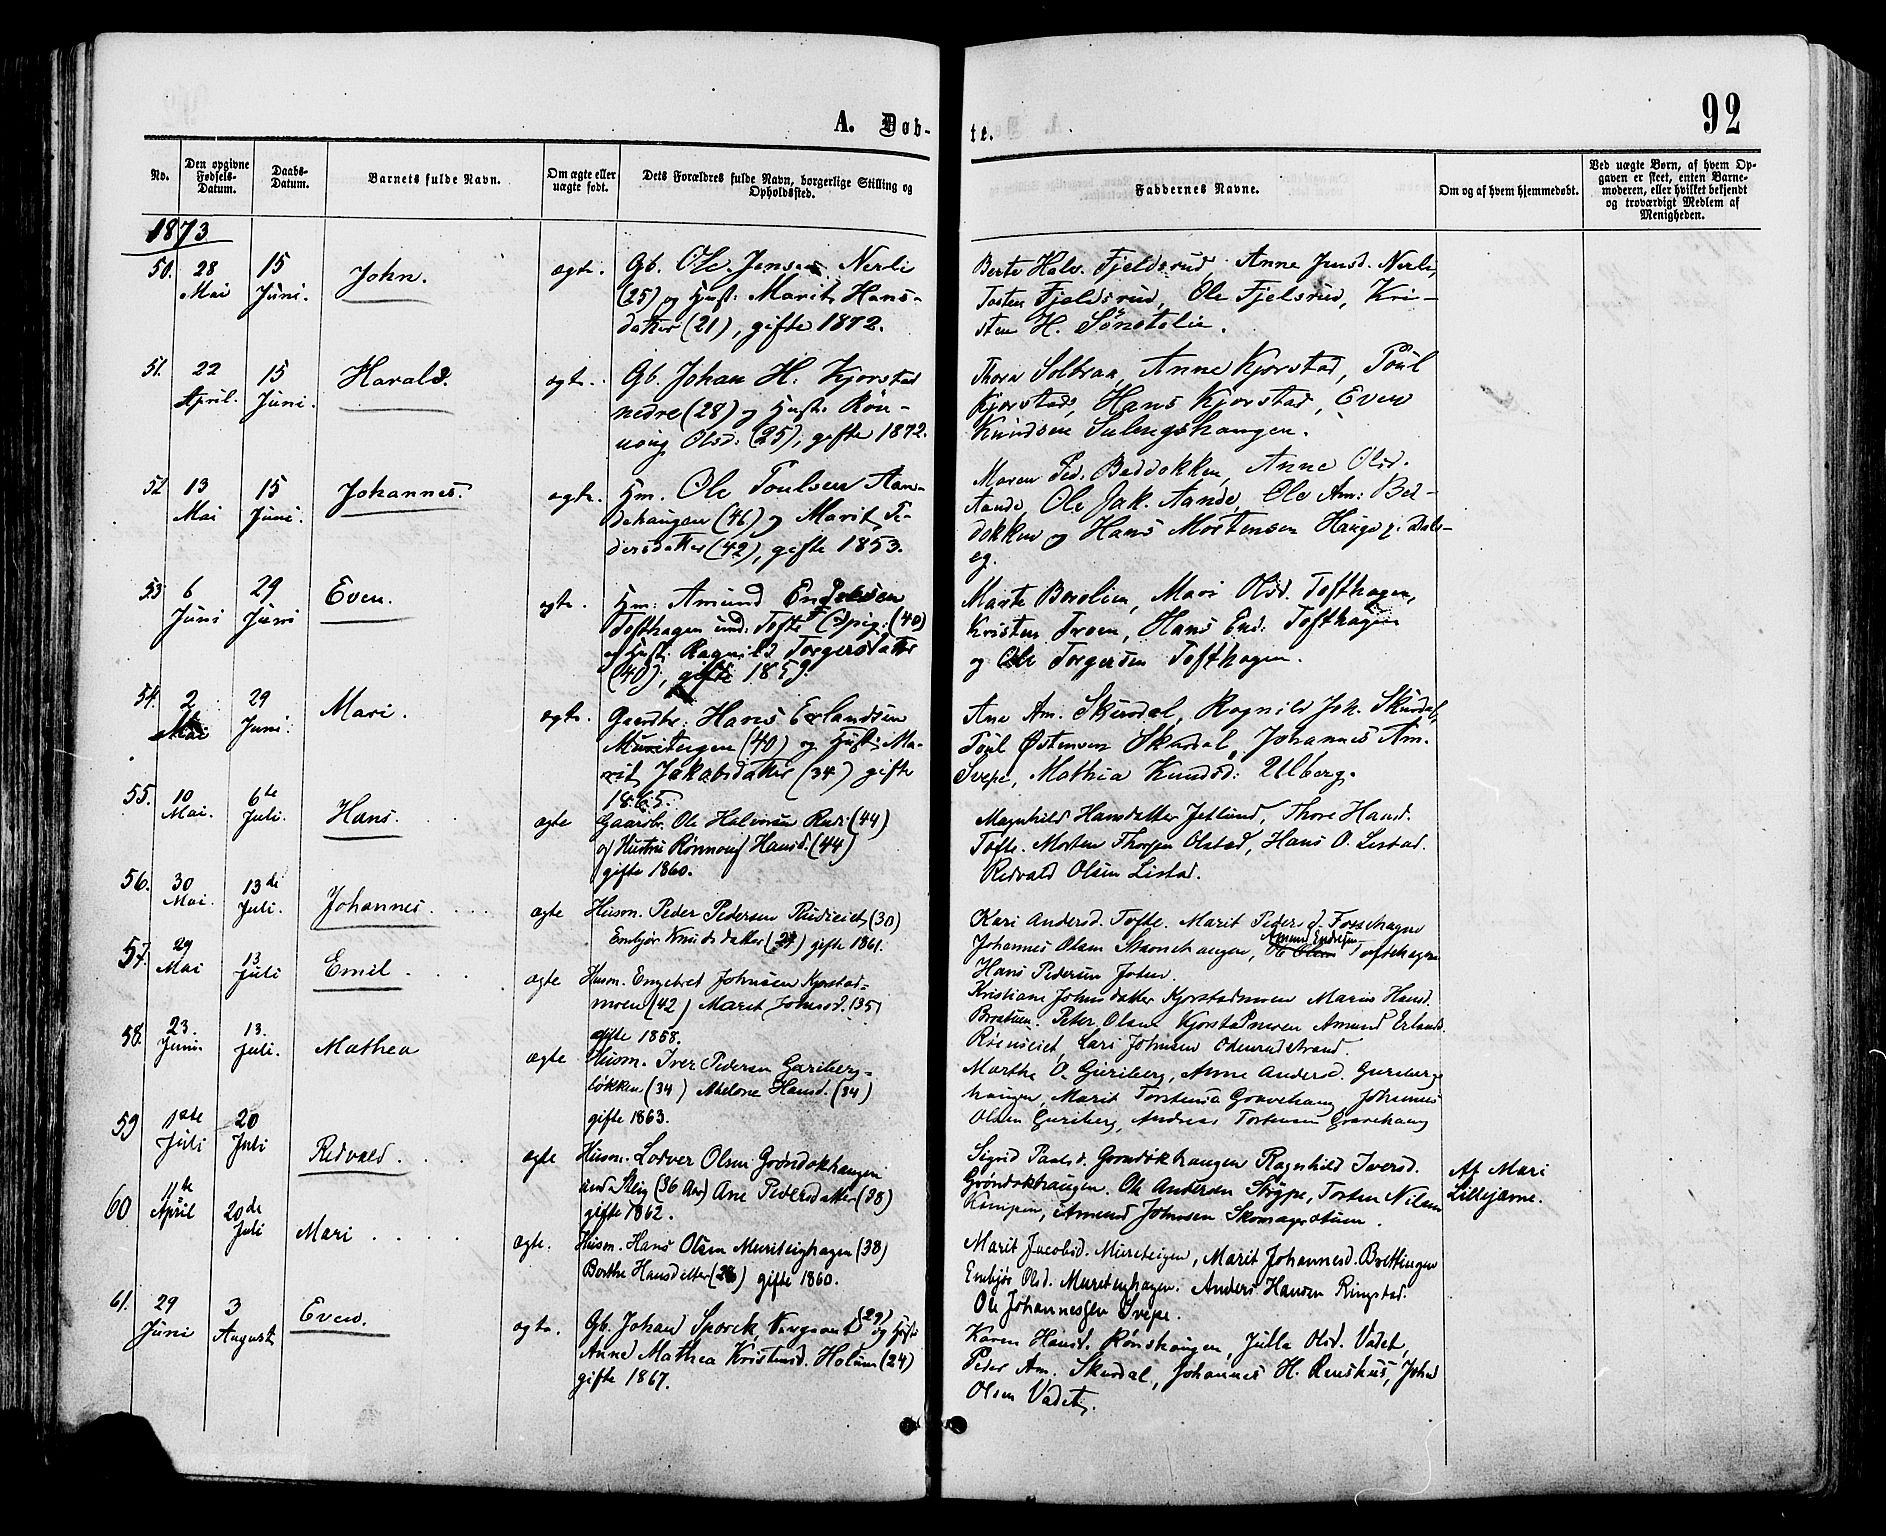 A. Døb-
te.
92
No.
Den opgivne Fødsels-Datum.
Daabs-Datum.
Barnets fulde Navn.
Om ægte eller uægte født.
Dets Forældres fulde Navn, borgerlige Stilling og Opholdssted.
Faddernes Navne.
Om og af hvem hjemmedøbt.
Ved uægte Børn, af hvem Opgaven er skeet, enten Barnemoderen, eller hvilket bekjendt og troværdigt Medlem af Menigheden.
1873
50. 28 Mai 15 Juni. John. ægte.
Gb. Ole Jensen Nerli
(25) og Hust: Marit Hans-
datter (21), gifte 1872.
Berte Halv. Fjeldsrud, Anne Jensd. Nerli,
Tosten Fjeldsrud, Ole Fjelsrud, Kri-
sten H. Sønstelie.
51. 22 April. 15 Juni. Harald. ægte.
Gb. Johan H. Kjorstad
nedre (28) og Hust. Rön-
naug Olsd: (25), gifte 1872.
Thora Solbraa, Anne Kjorstad, Poul
Kjorstad, Hans Kjorstad, Even
Knudsen Sulengshaugen.
52 13 Mai 15 Juni. Johannes. ægte.
Hm. Ole Poulsen Aan-
dehaugen (46) og Marit Pe-
dersdatter (42), gifte 1853.
Maren Ped. Baddokken, Anne Olsd.
Aande, Ole Jak. Aande, Ole Am: Bad-
dokken og Hans Mortensen Hauge p. Dals-
eg.
53 6 Juni 29 Juni Even. ægte.
Hm: Amund Endresen
Tofthagen und. Tofte (40)
og Hust. Ragnild Torgersdatter
(40), gifte 1859.
Marte Borolien, Mari Olsd. Tofthagen,
Kristen Troen, Hans End: Tofthagen
og Ole Torgersen Tofthagen.
54. 2 Mai 29 Juni. Mari. ægte.
Gaardbr. Hans Erlandsen
Muriteigen (40) og Hust: Ma-
rit Jakobsdatter (34) gifte
1865.
Ane Am. Skurdal, Ragnild Joh. Skurdal,
Poul Østensen Skurdal, Johannes Am.
Svepe, Mathia Knudsd: Ulberg.
55. 10 Mai. 6te Juli. Hans. ægte
Gaardbr. Ole Halvorsen Rudi (44)
og Hustru Rönnoug Hansd. (44)
gifte 1860.
Magnhild Hansdatter Jetlund, Thore Hansd.
Tofte. Morten Thorsen Olstad, Hans O. Listad.
Redvald Olsen Listad.
56. 30 Mai. 13de Juli. Johannes. ægte
Husm. Peder Pedersen Rudieiet (30)
Embjør Knudsdatter (29) gifte 1861.
Kari Andersd. Tofte. Marit Pedersd. Tofthagen
Johannes Olsen Stavnehaugen, Amund Endresen Tofthagen
Hans Pedersen
57. 29 Mai 13 Juli Emil. ægte
Husm. Engebret Johnsen Kjorstad-
moen (42) Marit Johnsd. (35)
gifte 1868.
Kristiane Johnsdatter Kjorstadmoen Marius Hansd.
Bratuen. Peter Olsen Kjorstadmoen Amund Erlands.
Lars Johnsen Odenrudstrand.
58. 23. Juni. 13. Juli. Mathea ægte.
Husm. Iver Pedersen Guriberg-
løkken (34) Hansd. (34)
gifte 1863.
Marthe O. Guriberg, Anne Andersd. Guriberg-
haugen, Marit Torstensd Gravehaug Johannes
Olsen Guriberg, Andreas Torstensen Gravehaug
59 1ste Juli 20 Juli Redvald. ægte
Husm. Lodver Olsen Grøndokhaugen
und. Steig (36 Aar) Ane Pedersdatter (38)
gifte 1862.
Sigrid Paulsd. Grøndokhaugen Ragnhild Iversd.
Grøndokhaugen. Ole Andersen Strype, Torsten Nilsen
Kempen, Amund Johnsen Skomagerstuen.
Af Mari
Lillejorne.
60 11te April 20de Juli Mari ægte.
Husm. Hans Olsen Muriteighagen (38)
Berthe Hansdatter (28) gifte 1860.
Marit Jacobsd. Mureteigen, Marit Johannesd. Brettingen
Embjør Olsd. Mureteighagen. Anders Hansen Ringstad.
Ole Johannesen Svepe.
61. 29 Juni 3 August Even. ægte.
Gb. Johan Sporck, (29) og Hust
Anne Mathea Kristensd. Holum (24)
gifte 1867.
Karen Hansd. Rønshaugen, Julla Olsd. Vadet,
Peder Am. Skurdal, Johannes H. Renshus, John
Olsen Vadet.